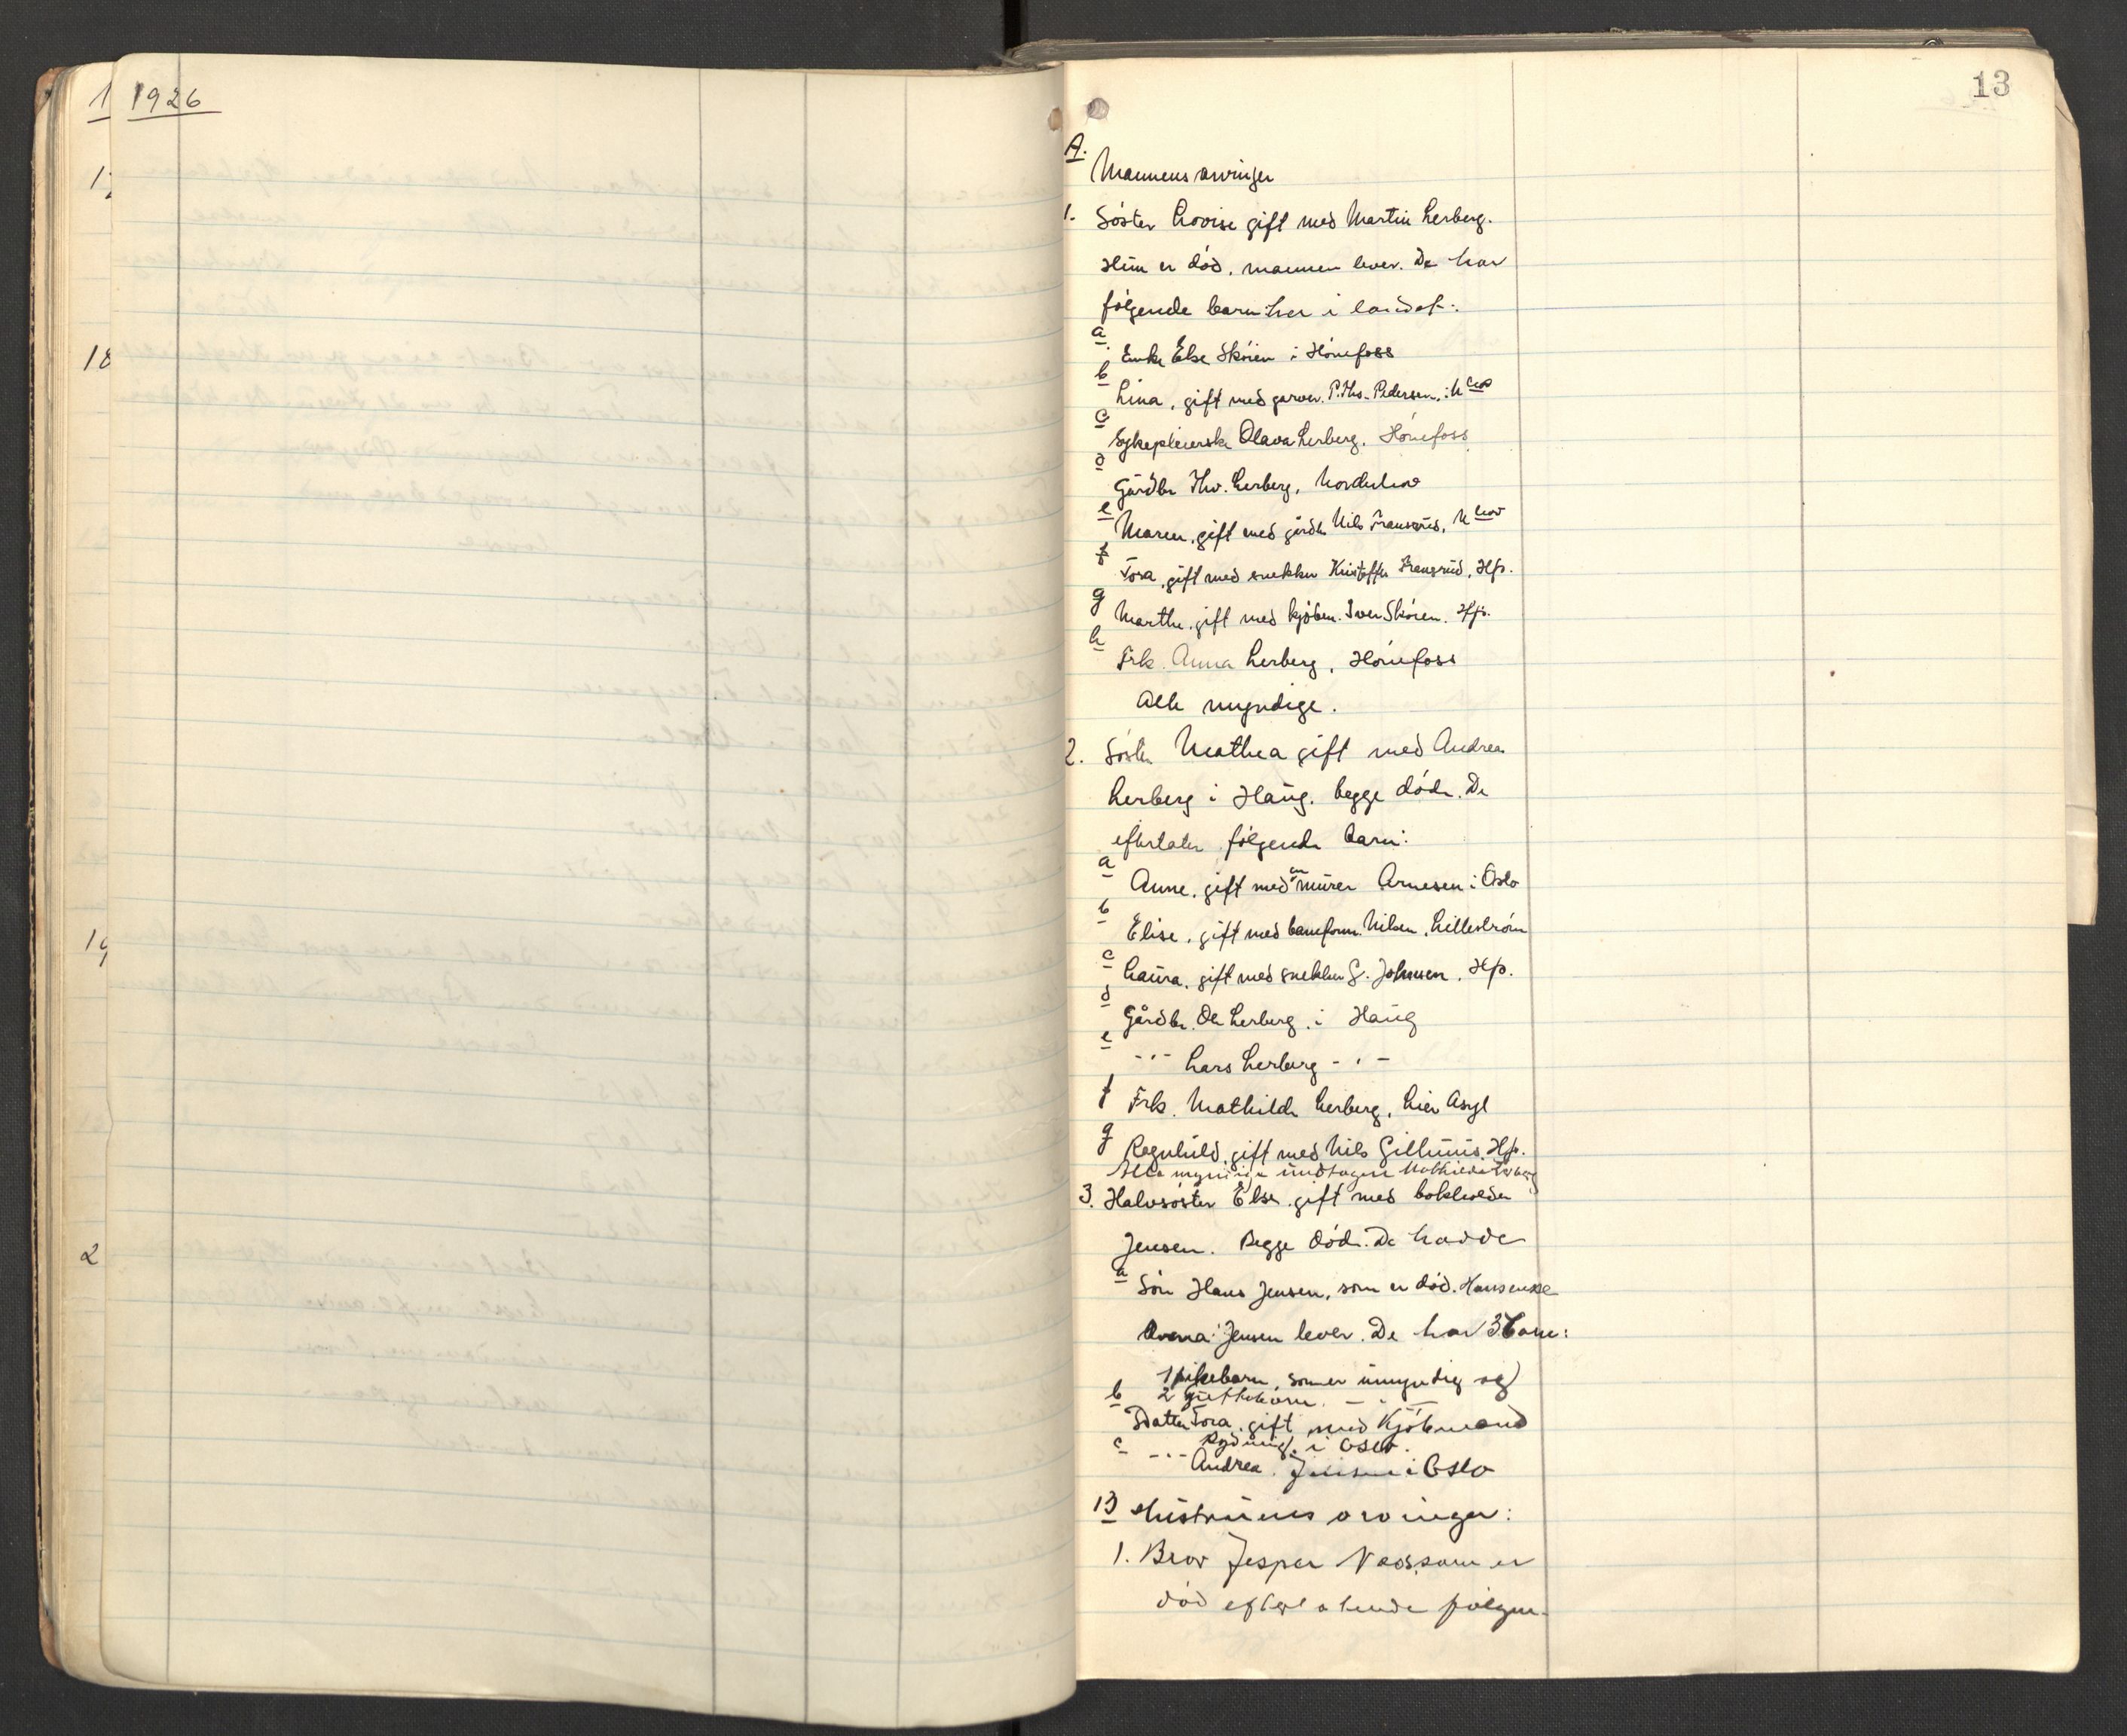 1 1926
17
18
19
2
13
A.
Mannens arvinger
1. Søster Lovise gift med Martin Lerberg.
Hun er død, mannen lever. De har
følgende barn her i landet:
a. Enke Else Skøien i Hønefoss
b Lina, gift med garver P. Ths. Pedersen, i Nhov
c Sykepleierske Olava Lerberg, Hønefoss
d Gårdbr Thv. Lerberg, Norderhov
e Maren, gift med gårdb. Nils Gransrud, Nhov
f Tora, gift med snekker Kristoffer Fransrud, Hfs.
g Marthe, gift med kjøbm. Iver Skøien. Hfs.
h Frk. Anna Lerberg, Hønefoss
Alle myndige.
2. Søster Mathea gift med Andreas
Lerberg i Haug. begge døde. De
efterlater følgende barn:
a Anne, gift med en murer Arnesen i Oslo
b Elise, gift med baneform. Nilsen, Lillestrøm
c Laura, gift med snekker G. Johnsen, Hfs.
d Gårdbr. Ole Lerberg, i Haug
e -"- Lars Lerberg -"-
f Frk. Mathilde Lerberg, Lier Asyl
g Ragnhild, gift med Nils Gillhuus, Hfs.
Alle myndige undtagen Mathilde Lerberg
3. Halvsøster Else, gift med bokholder
Jensen. Begge døde. De hadde
a Søn Hans Jensen, som er død. Hans enke
Anna Jensen lever. De har 3 barn:
1 pikebarn, som er umyndig og
2 guttebarn. -"-
b Datter Tora, gift med Kjøbmand
i Oslo.
c -"- Andrea Jensen i Oslo
B Hustruens arvinger:
1. Bror Jesper Næss, som er
død efterlatende følgen-